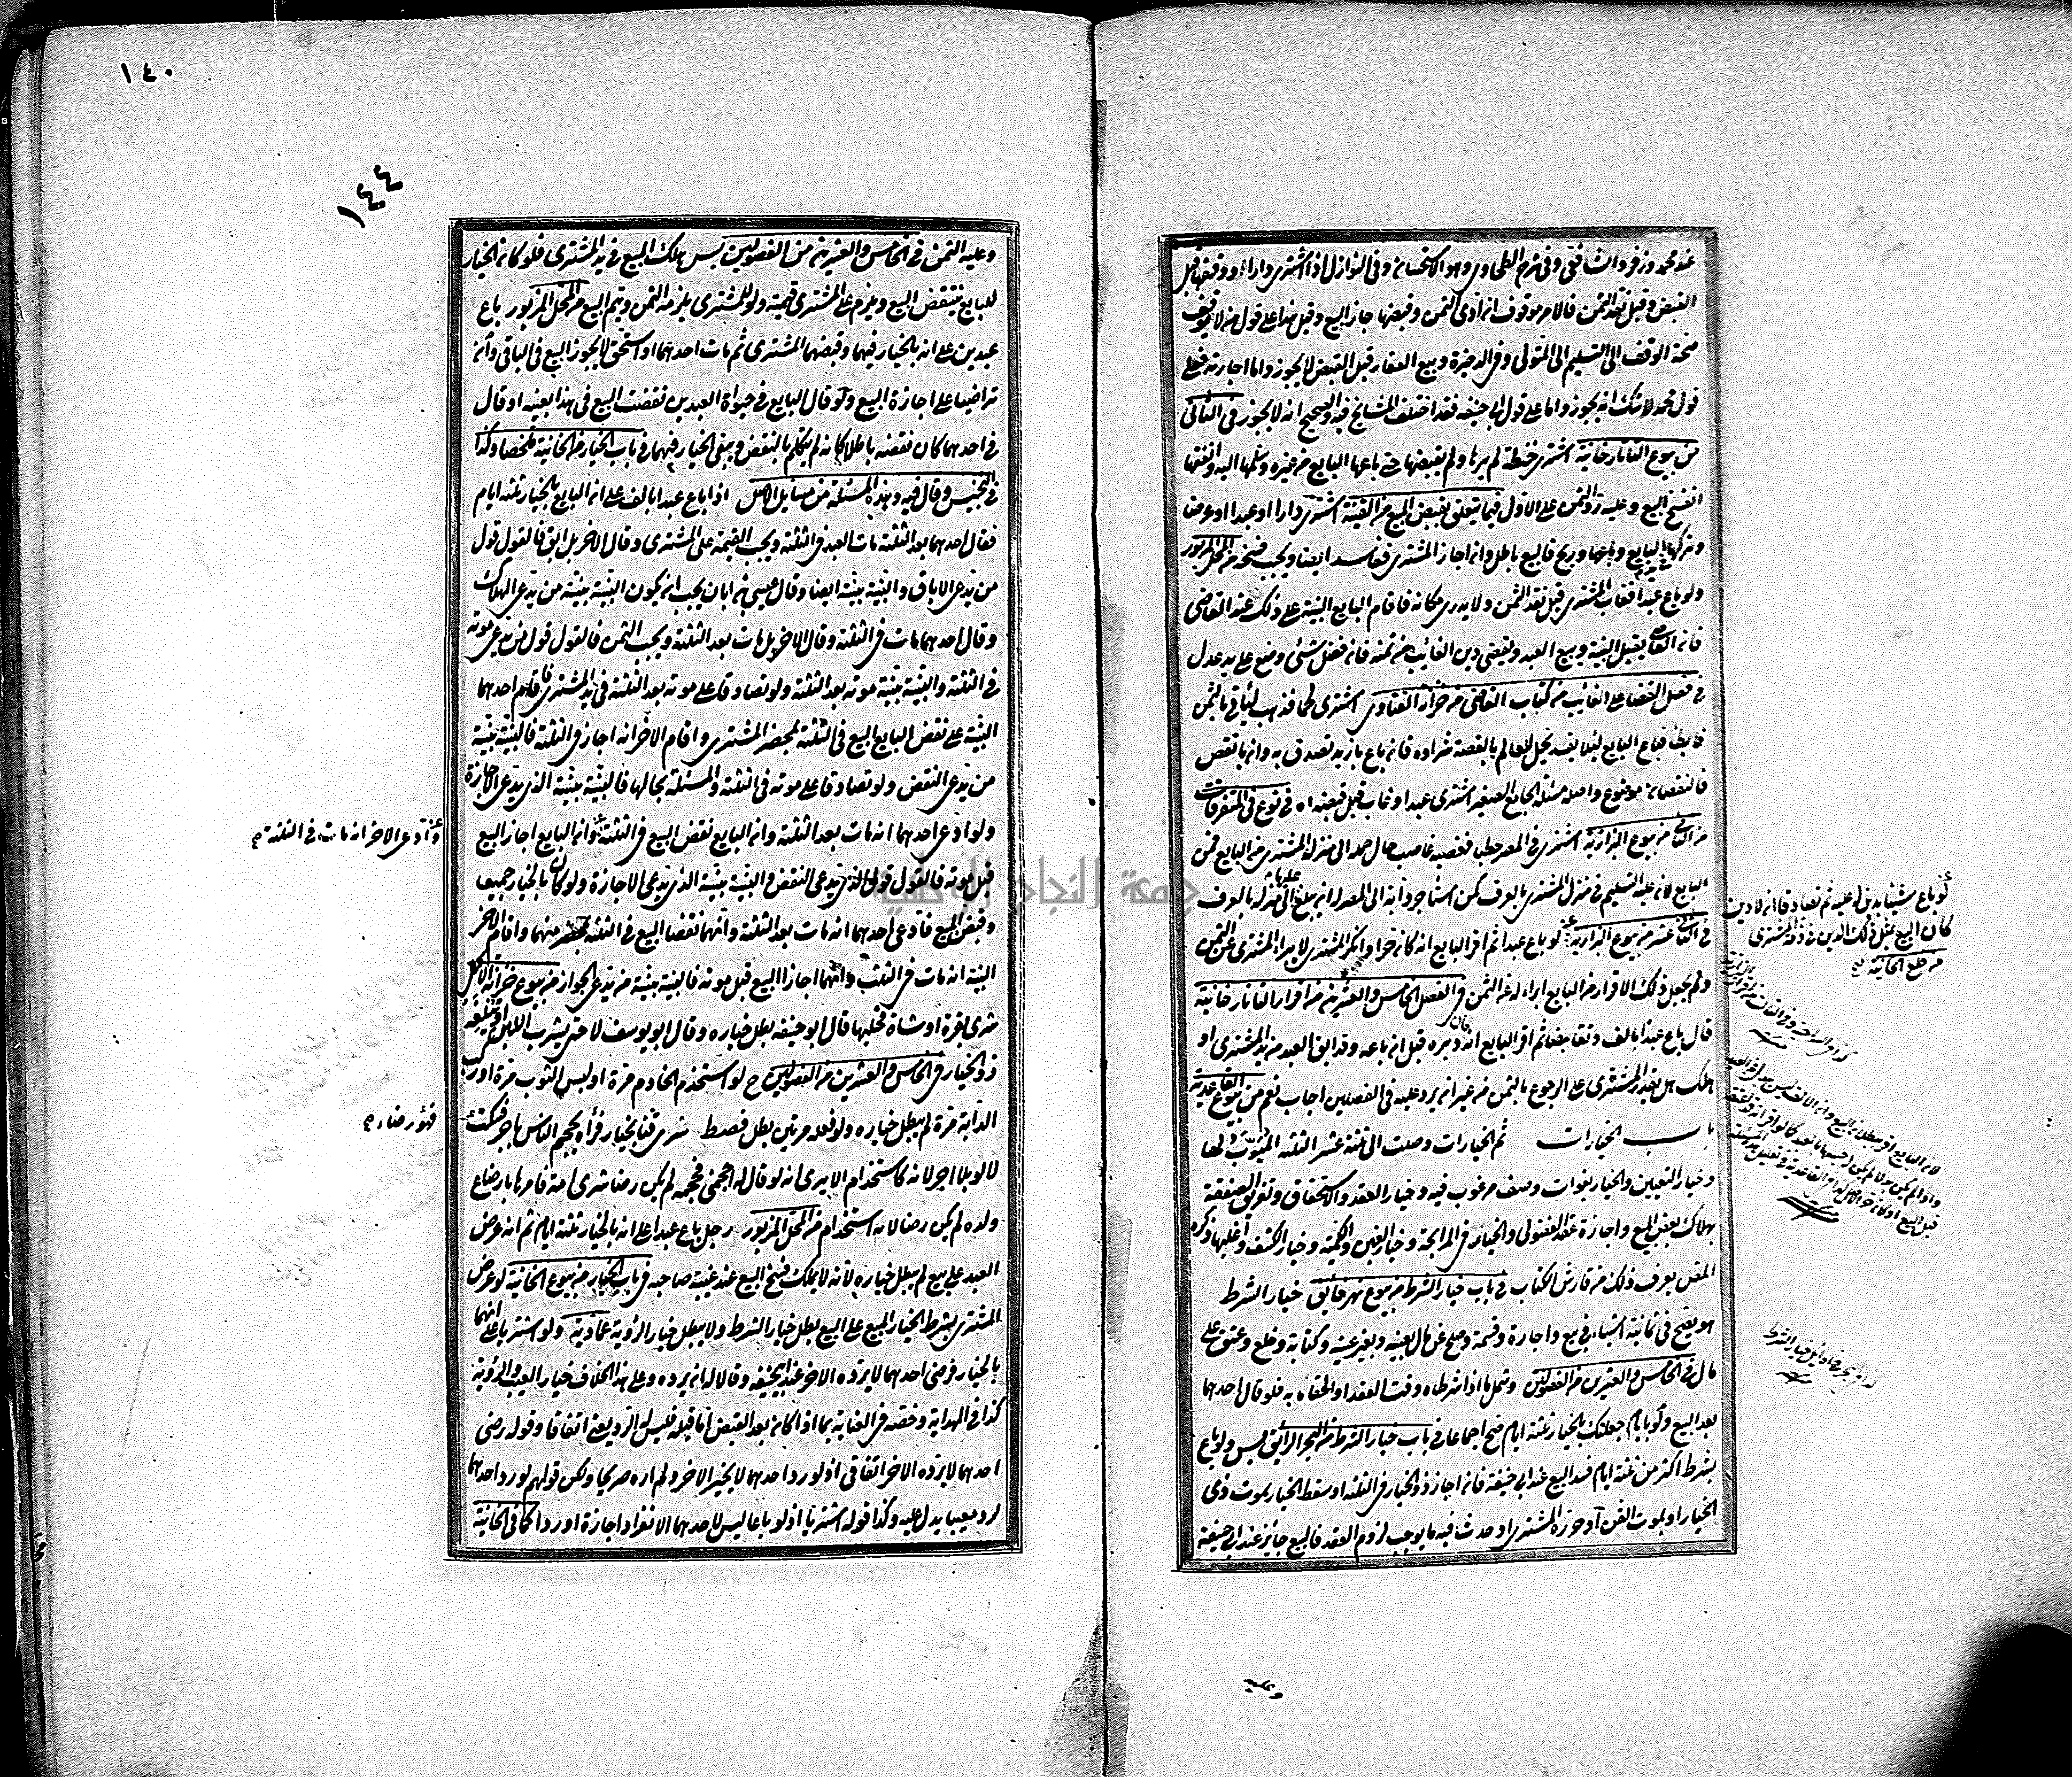 عند محمد وزفر والشافعي وفي شرح الطحاوي وهو الاستحسان وفي النوازل اذا اشترى دارا ووقفها قبل
القبض وقبل نقد الثمن فالامر موقوف ان ادى الثمن وقبضها جاز البيع وقيل هذا على قول من لا
صحة الوقف الى التسليم الى المتولى وفي الذخيرة وبيع العقار قبل القبض لا يجوز واما اجارته فعلى
قول محمد لا شك انه يجوز واما على قول ابى حنيفه فقد اختلف المشايخ فيه والصحيح انه لا يجوز في الثانى
من بيوع التاتارخانية اشترى حنطة لم يرها ولم يقبضها حتى باعها البايع من غيره وسلمها اليه وانفقها
انفسخ البيع وعليه رد الثمن على الاول فيما يتعلق بقبض المبيع من القنية اشترى دارا او عبدا او عرضا
وتركها البايع وباعها وربح فالبيع باطل وان اجاز المشترى ففاسد ايضا ويجب فسخه من المحل المزبور
ولو باع عبدا فغاب المشترى قبل نقد الثمن ولا يدرى مكانه فاقام البايع البينة على ذلك عند القاضى
فان القاضى يقبل البينة ويبيع العبد ويقضى دين الغائب من ثمنه فان فضل شئ وضع على يد عدل
في فصل القضا على الغائب من كتاب القاضى من خزانة الفتاوى اشترى لحما فذهب ليأتى بالثمن
فابطأ فباع البايع لئلا يفسد يحل للعالم بالقصة شراده فان باع بازيد تصدق به وان بانقص
فالنقصان موضوع واصله مسئلة الجامع الصغير اشترى عبدا وغاب قبل قبضه اه في نوع في المتفرقات
من الثانى من بيوع البزازية اشترى في المصر حطبا فغصبه غاصب حال حمله الى منزل المشترى من البايع فمن
البايع لان عليه التسليم في منزل المشترى بالعرف كمن استأجر دابة الى المصر له ان يبلغ عليها الى منزله بالعرف
في الثانى عشر من بيوع البزازية لو باع عبدا ثم اقر البايع انه كان حرا وانكر المشترى لا يبرا المشترى عن الثمن
ولم يجعل ذلك الاقرار من البايع ابراء له عن الثمن في الفصل الخامس والعشرين من اقرار التاتارخانية
قال باع عبدا بالف وتقابضا ثم اقر البايع انه دبره قبل ان باعه وقد ابق العبد من يد المشترى او
هلك هل يقدر المشترى على الرجوع بالثمن من غير ان يرد عليه في الفصلين اجاب نعم من بيوع القاعدية
باب الخيارات ثم الخيارات وصلت الى ثلثة عشر الثلثة المبوب لها
وخيار التعيين والخيار بفوات وصف مرغوب فيه وخيار العقد والاستحقاق وتفريق الصفقة
بهلاك بعض المبيع واجازة عقد الفضولى والخيار في المرابحة وخيار الغبن والكمية وخيار الكشف واغلبها ذكره
المص يعرف ذلك من مارس الكتاب في باب خيار الشرط من بيوع نهر فائق خيار الشرط
هو يصح في ثمانية اشياء في بيع واجارة وقسمة وصلح عن مال بعينه وبغير عينه وكتابة وخلع وعتق على
مال في الخامس والعشرين من الفصولين وشمل ما اذا شرطاه وقت العقد او الحقاه به فلو قال احدهما
بعد البيع ولو بايام جعلتك بالخيار ثلثة ايام صح اجماعا في باب خيار الشرط من البحر الرائق ولو باع
بشرط اكثر من ثلثة ايام فسد البيع عند ابى حنيفة فان اجاز ذو الخيار في الثلثة او سقط الخيار بموت ذى
الخيار او بموت القن او حرره المشترى او حدث فيه ما يوجب لزوم العقد فالبيع جائز عند ابى حنيفة
لو باع شيئا بدين له عليه ثم تصادقا ان لا دين
كان البيع بمثل ذلك الدين في ذمة المشترى
من خلع الخانية
١٤٠
١٤٤
وعليه الثمن في الخامس والعشرين من الفصولين بس هلك المبيع في يد المشترى فلو كان الخيار
للبايع ينتقض البيع ويلزم على المشترى قيمته ولو للمشترى يلزمه الثمن ويتم البيع من المحل المزبور باع
عبدين على انه بالخيار فيهما وقبضهما المشترى ثم مات احدهما او استحق لا يجوز البيع في الباقى وان
تراضيا على اجازة البيع ولو قال البايع في حياة العبدين نقضت البيع في هذا بعينه او قال
في احدهما كان نقضه باطلا كانه لم يتكلم بالنقض ويبقى الخيار فيهما في باب الخيار من الخانية ملخصا وكذا
في التجنيس وقال فيه وهذه المسئلة من مسايل الاصل اذا باع عبدا بالف على ان البايع بالخيار ثلثة ايام
فقال احدهما بعد الثلثة مات العبد في الثلثة ويجب القيمة على المشترى وقال الاخر بل ابق فالقول قول
من يدعى الاباق والبينة بينته ايضا وقال عيسى بن ابان يجب ان يكون البينة بينة من يدعى الهلاك
وقال احدهما مات في الثلثة وقال الاخر بل مات بعد الثلثة ويجب الثمن فالقول قول من يدعى موته
في الثلثة والبينة بينة موته بعد الثلثة ولو تصادقا على موته بعد الثلثة في يد المشترى فاقام احدهما
البينة على نقض البايع البيع في الثلثة بمحضر المشترى واقام الاخر انه اجاز في الثلثة فالبينة بينة
من يدعى النقض ولو تصادقا على موته في الثلثة والمسئلة بحالها فالبينة بينة الذى يدعى الاجازة
ولو ادعى احدهما انه مات بعد الثلثة وان البايع نقض البيع في الثلثة وان البايع اجاز البيع
قبل موته فالقول قول الذى يدعى النقض والبينة بينة الذى يدعى الاجازة ولو كان بالخيار جميعا
وقبض المبيع فادعى احدهما انه مات بعد الثلثة وانهما نقضا البيع في الثلثة بمحضر منهما واقام الاخر
البينة انه مات في الثلث وانهما اجازا البيع قبل موته فالبينة بينة من يدعى الجواز من بيوع خزانة الاكمل
شرى بقرة او شاة فحلبها قال ابو حنيفه بطل خياره وقال ابو يوسف لا حتى يشرب اللبن او يتلفه
ذو الخيار في الخامس والعشرين من الفصولين ح لو استخدم الخادم مرة او لبس الثوب مرة او ركب
الدابة مرة لم يبطل خياره ولو فعله مرتين بطل فصط شرى قنا بخيار فرآه يحجم الناس باجر فسكت
لا لو بلا اجر لانه كاستخدام الا يرى انه لو قال له احجمنى فحجمه لم يكن رضا شرى امة فامرها بارضاع
ولده لم يكن رضا لانه استخدام من المحل المزبور رجل باع عبدا على انه بالخيار ثلثة ايام ثم انه عرض
العبد على بيع لم يبطل خياره لانه لا يملك فسخ البيع عند غيبة صاحبه في باب الخيار من بيوع الخانية لو عرض
المشترى بشرط الخيار المبيع على البيع بطل خيار الشرط ولا يبطل خيار الرؤية عمادية ولو اشتريا على انهما
بالخيار فرضى احدهما لا يرده الاخر عند ابى حنيفه وقالا له ان يرده وعلى هذا الخلاف خيار العيب والرؤية
كذا في الهداية وخصه في العناية بما اذا كان بعد القبض اما قبله فليس له الرد يعنى اتفاقا وقوله رضى
احدهما لا يرده الاخر اتفاقى اذ لو رد احدهما لا يجيز الاخر ولم اره صريحا ولكن قولهم لو رد احدهما
لرد معيبا يدل عليه وكذا قوله اشتريا اذ لو باعا ليس لاحدهما الانفراد اجازة او ردا كما في الخانية
وادعى الاخر انه مات في الثلثة
فهو رضاء